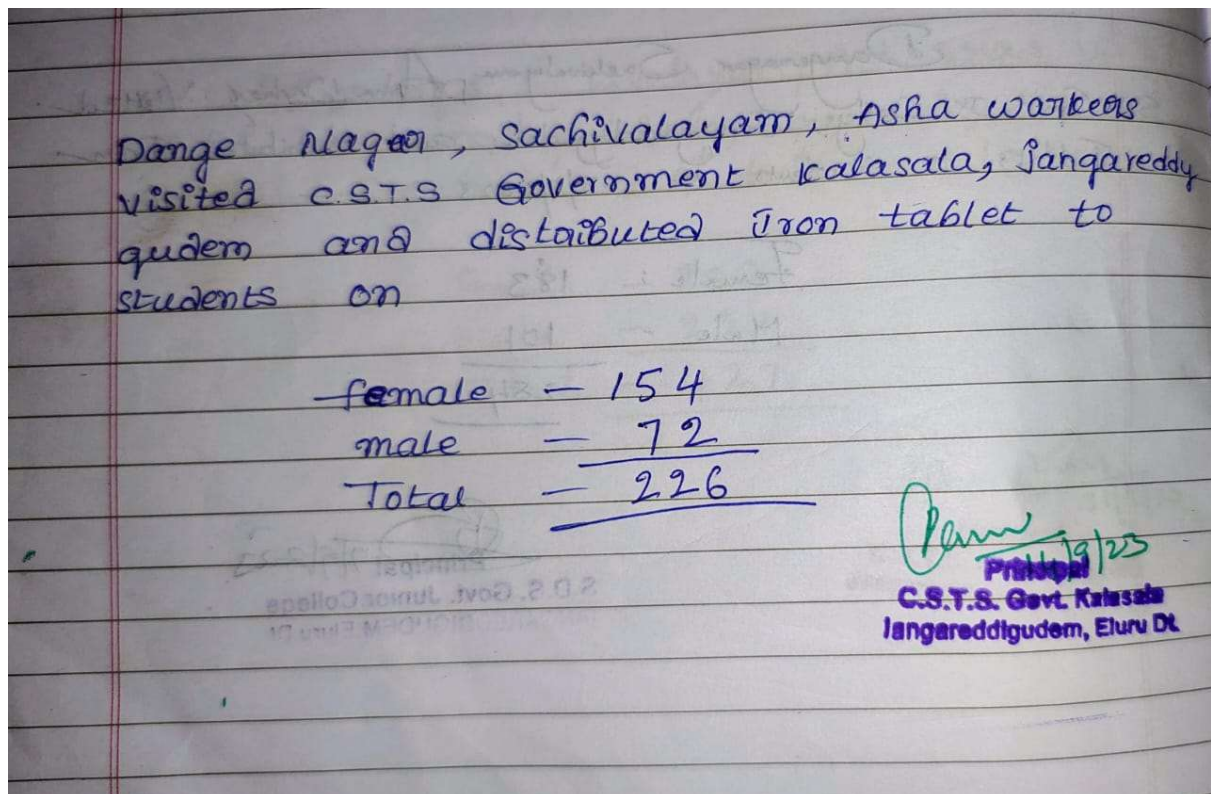 Dange Nagar, Sachivalayam, Asha warkers
visited C.S.T.S Government Kalasala, jangareddy
gudem and distributed Iron tablet to
students on
female - 154
male - 72
Total - 226
9/23
Principal
C.S.T.S. Govt. Kalasala
Jangareddigudem, Eluru Dt.